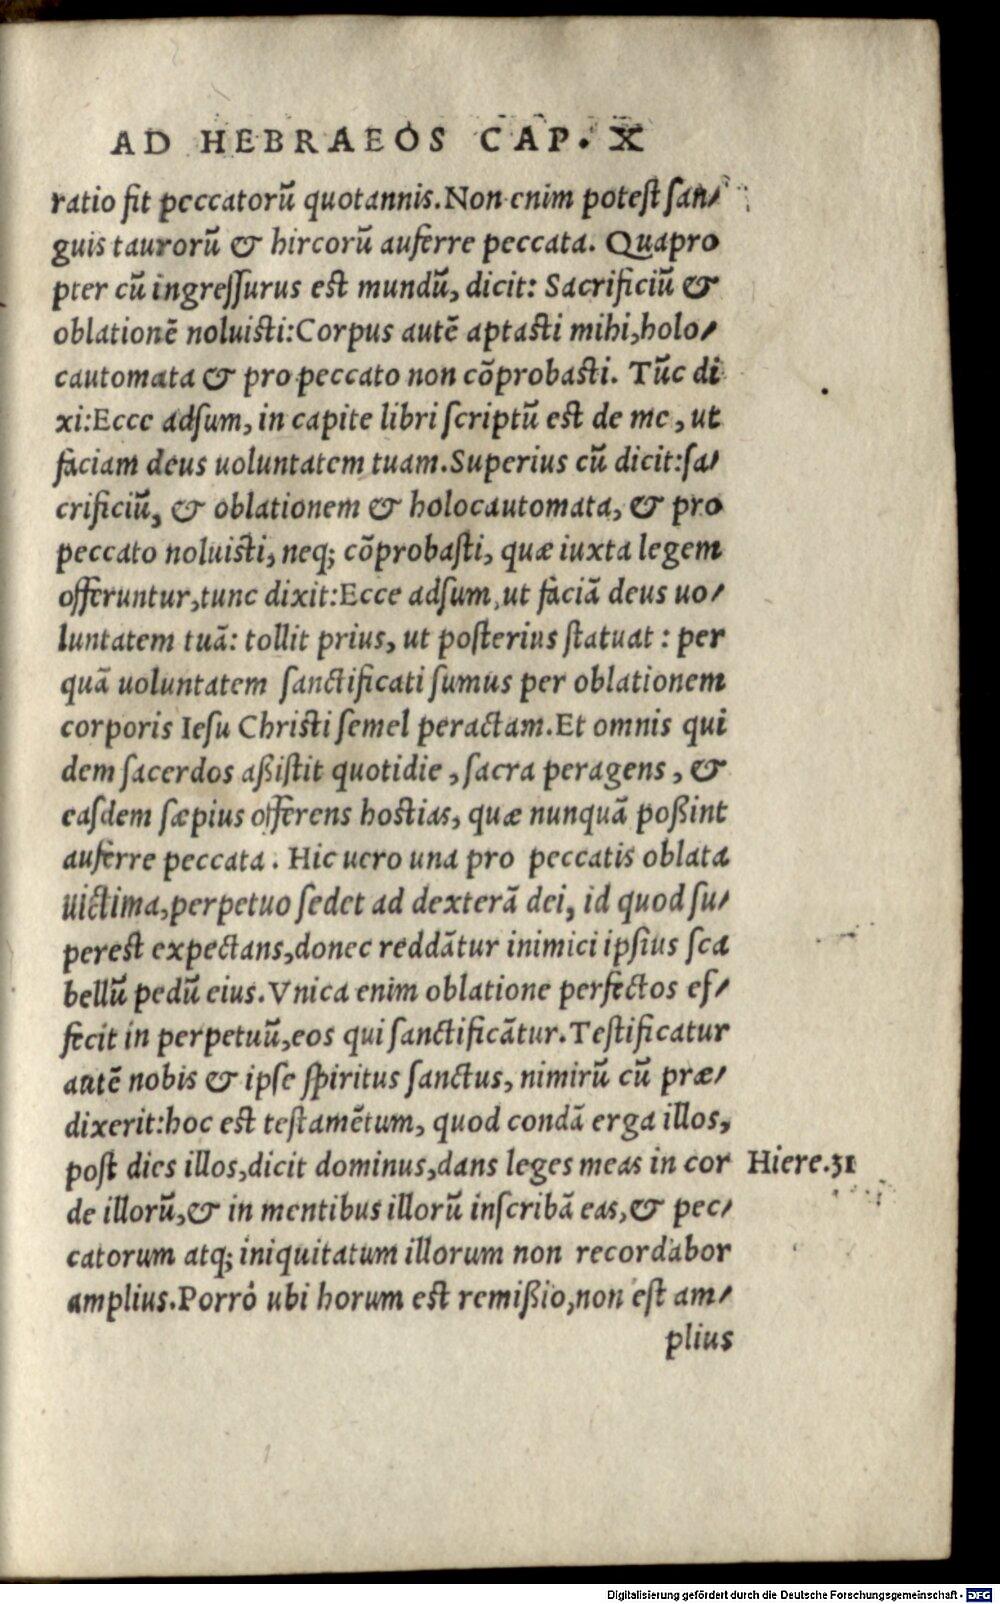 AD HEBRAEOS CAP. X
ratio fit peccatorū quotannis. Non enim potest ſan/
guis taurorū & hircorū auferre peccata. Quapro
pter cū ingreſſurus est mundū, dicit: Sacrificiū &
oblationē noluisti: Corpus autē aptasti mihi, holo/
cautomata & pro peccato non cōprobasti. Tūc di
xi: Ecce adſum, in capite libri ſcriptū est de me, ut
faciam deus uoluntatem tuam. Superius cū dicit: ſa/
crificiū, & oblationem & holocautomata, & pro
peccato noluisti, neq; cōprobaſti, quæ iuxta legem
offeruntur, tunc dixit: Ecce adſum, ut faciā deus uo/
luntatem tuā: tollit prius, ut poſterius ſtatuat: per
quā uoluntatem ſanctificati ſumus per oblationem
corporis Ieſu Christi ſemel peractam. Et omnis qui
dem ſacerdos aßiſtit quotidie, ſacra peragens, &
eaſdem ſæpius offerens hostias, quæ nunquā poßint
auferre peccata. Hic uero una pro peccatis oblata
uictima, perpetuo ſedet ad dexterā dei, id quod ſu/
perest expectans, donec reddātur inimici ipſius ſca
bellū pedū eius. Vnica enim oblatione perfectos ef/
fecit in perpetuū, eos qui ſanctificātur. Teſtificatur
autē nobis & ipſe ſpiritus ſanctus, nimirū cū præ/
dixerit: hoc est teſtamētum, quod condā erga illos,
poſt dies illos, dicit dominus, dans leges meas in cor Hiere. 31
de illorū, & in mentibus illorū inſcribā eas, & pec/
catorum atq; iniquitatum illorum non recordabor
amplius. Porrò ubi horum est remißio, non eſt am/
plius
Digitalisierung gefördert durch die Deutsche Forschungsgemeinschaft - DFG